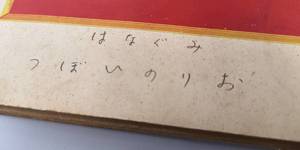 はなぐみ
つぼいのりお